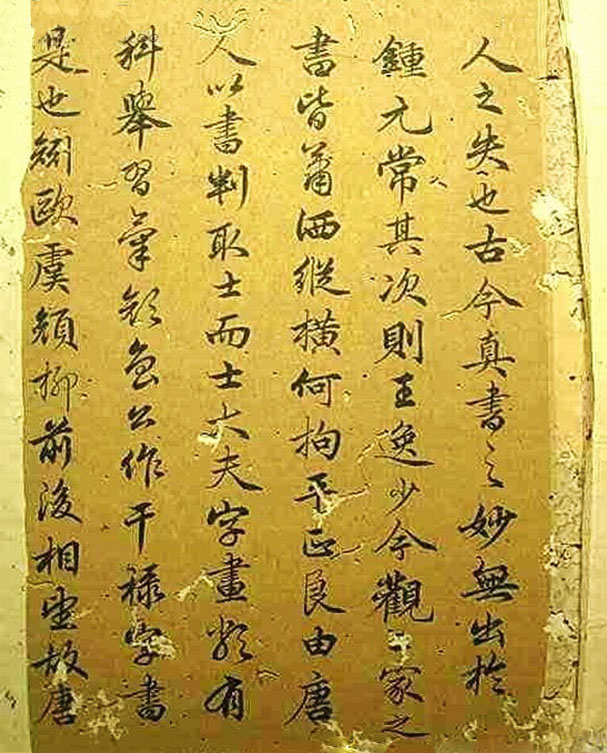 人之失也古今真書之妙無出於
鍾元常其次則王逸少今觀二家之
書皆蕭洒縱橫何拘平正良由唐
人以書判取士而士大夫字畫類有
科舉習氣顏魯公作干祿字書
是也矧歐虞顏柳前後相望故唐